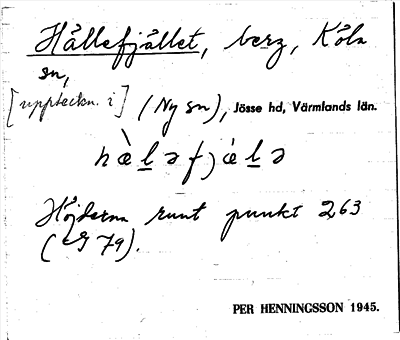 Hållefjållet, berg, Köla
sn,
[uppteckn. i] (Ny sn), Jösse hd, Värmlands län.
hæ̀l̲əfjæ̀l̲ə
Höjderna runt punkt 263
(eg 79).
PER HENNINGSSON 1945.